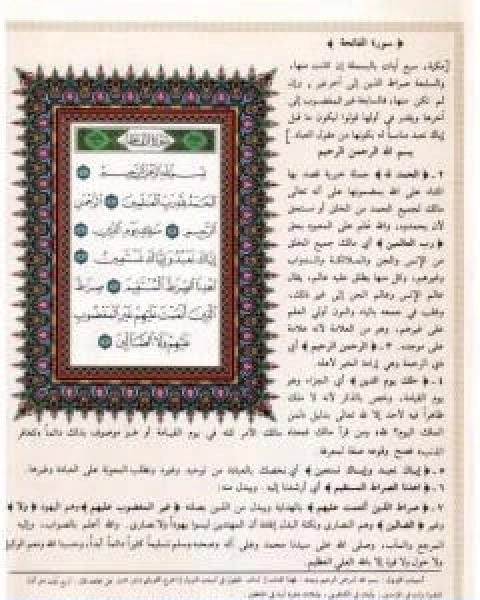 ﴿ سورة الفاتحة ﴾
[مكية، سبع آيات بالبسملة إن كانت منها،
والسابعة صراط الذين إلى آخرها، وإن
لم تكن منها، فالسابعة غير المغضوب إلى
آخرها ويقدر في أولها قولوا ليكون ما قبل
إياك نعبد مناسباً له بكونها من مقول العباد.]
بسم الله الرحمن الرحيم
٢ـ ﴿ الحمد لله ﴾ جملة خبرية قصد بها
الثناء على الله بمضمونها على أنه تعالى
مالك لجميع الحمد من الخلق أو مستحق
لأن يحمدوه، والله علم على المعبود بحق
﴿ رب العالمين ﴾ أي مالك جميع الخلق
من الإنس والجن والملائكة والدواب
وغيرهم، وكل منها يطلق عليه عالم، يقال
عالم الإنس وعالم الجن إلى غير ذلك،
وغلب في جمعه بالياء والنون أولي العلم
على غيرهم، وهو من العلامة لأنه علامة
على موجده. ٣ـ ﴿ الرحمن الرحيم ﴾ أي
ذي الرحمة وهي إرادة الخير لأهله.
٤ـ ﴿ ملك يوم الدين ﴾ أي الجزاء وهو
يوم القيامة، وخص بالذكر لأنه لا ملك
ظاهراً فيه لأحد إلا لله تعالى بدليل ﴿لمن
الملك اليوم؟ لله﴾ ومن قرأ مالك فمعناه مالك الأمر كله في يوم القيامة أو هو موصوف بذلك دائماً ﴿كغافر
الذنب﴾ فصح وقوعه صفة لمعرفة.
٥ـ ﴿ إياك نعبد وإياك نستعين ﴾ أي نخصك بالعبادة من توحيد وغيره ونطلب المعونة على العبادة وغيرها.
٦ـ ﴿ اهدنا الصراط المستقيم ﴾ أي أرشدنا إليه. ويبدل منه:
٧ـ ﴿ صراط الذين أنعمت عليهم ﴾ بالهداية ويبدل من الذين بصلته ﴿ غير المغضوب عليهم ﴾ وهم اليهود ﴿ ولا ﴾
وغير ﴿ الضالين ﴾ وهم النصارى ونكتة البدل إفادة أن المهتدين ليسوا يهوداً ولا نصارى. والله أعلم بالصواب، وإليه
المرجع والمآب، وصلى الله على سيدنا محمد وعلى آله وصحبه وسلم تسليماً كثيراً دائماً أبداً، وحسبنا الله ونعم الوكيل
ولا حول ولا قوة إلا بالله العلي العظيم.
سورة الفاتحة
بسم الله الرحمن الرحيم ١
الحمد لله رب العلمين ٢ الرحمن
الرحيم ٣ ملك يوم الدين ٤
إياك نعبد وإياك نستعين ٥
اهدنا الصراط المستقيم ٦ صراط
الذين أنعمت عليهم غير المغضوب
عليهم ولا الضالين ٧